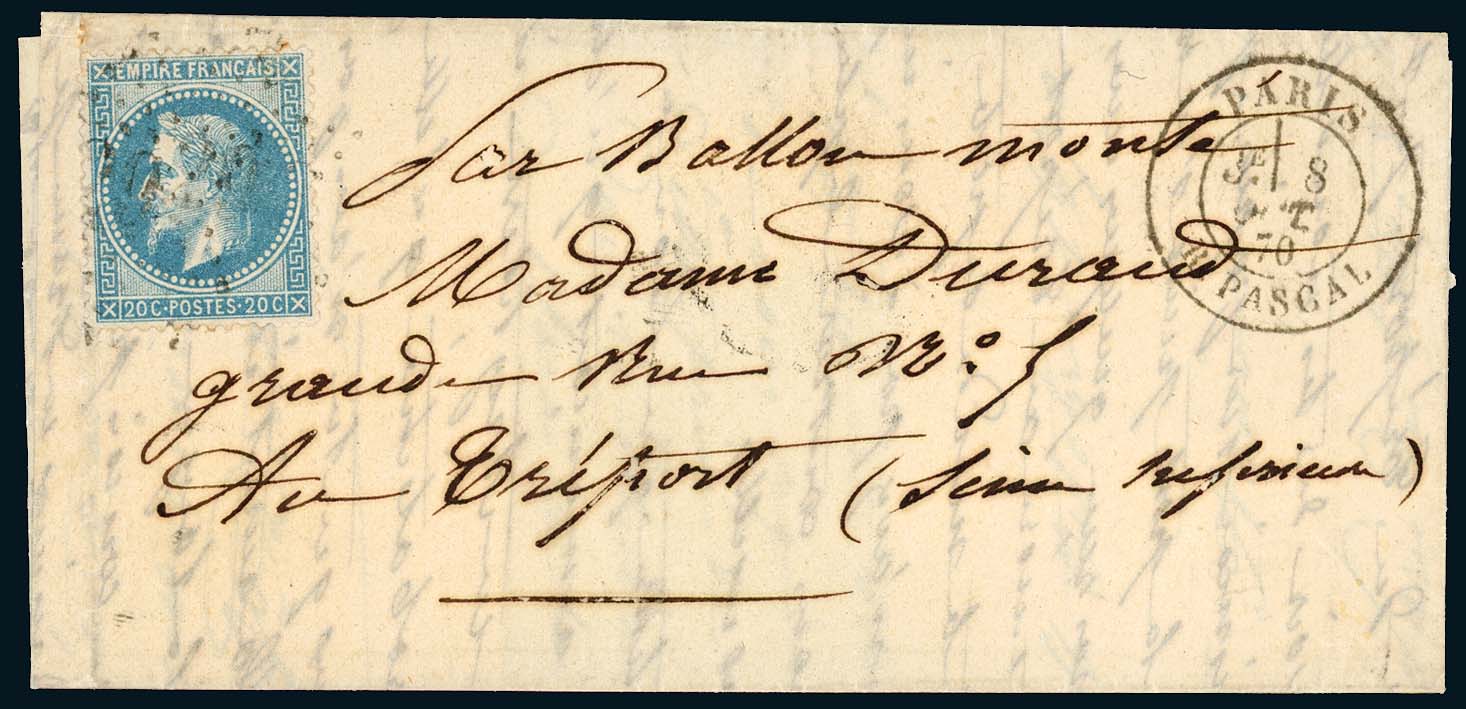 EMPIRE FRANÇAIS
20C·POSTES·20C
PARIS
3E 8
70
R. PASCAL
Par Ballon monté
Madame Durand
grande Rue No. 5
Au Tréport (Seine Inférieure)